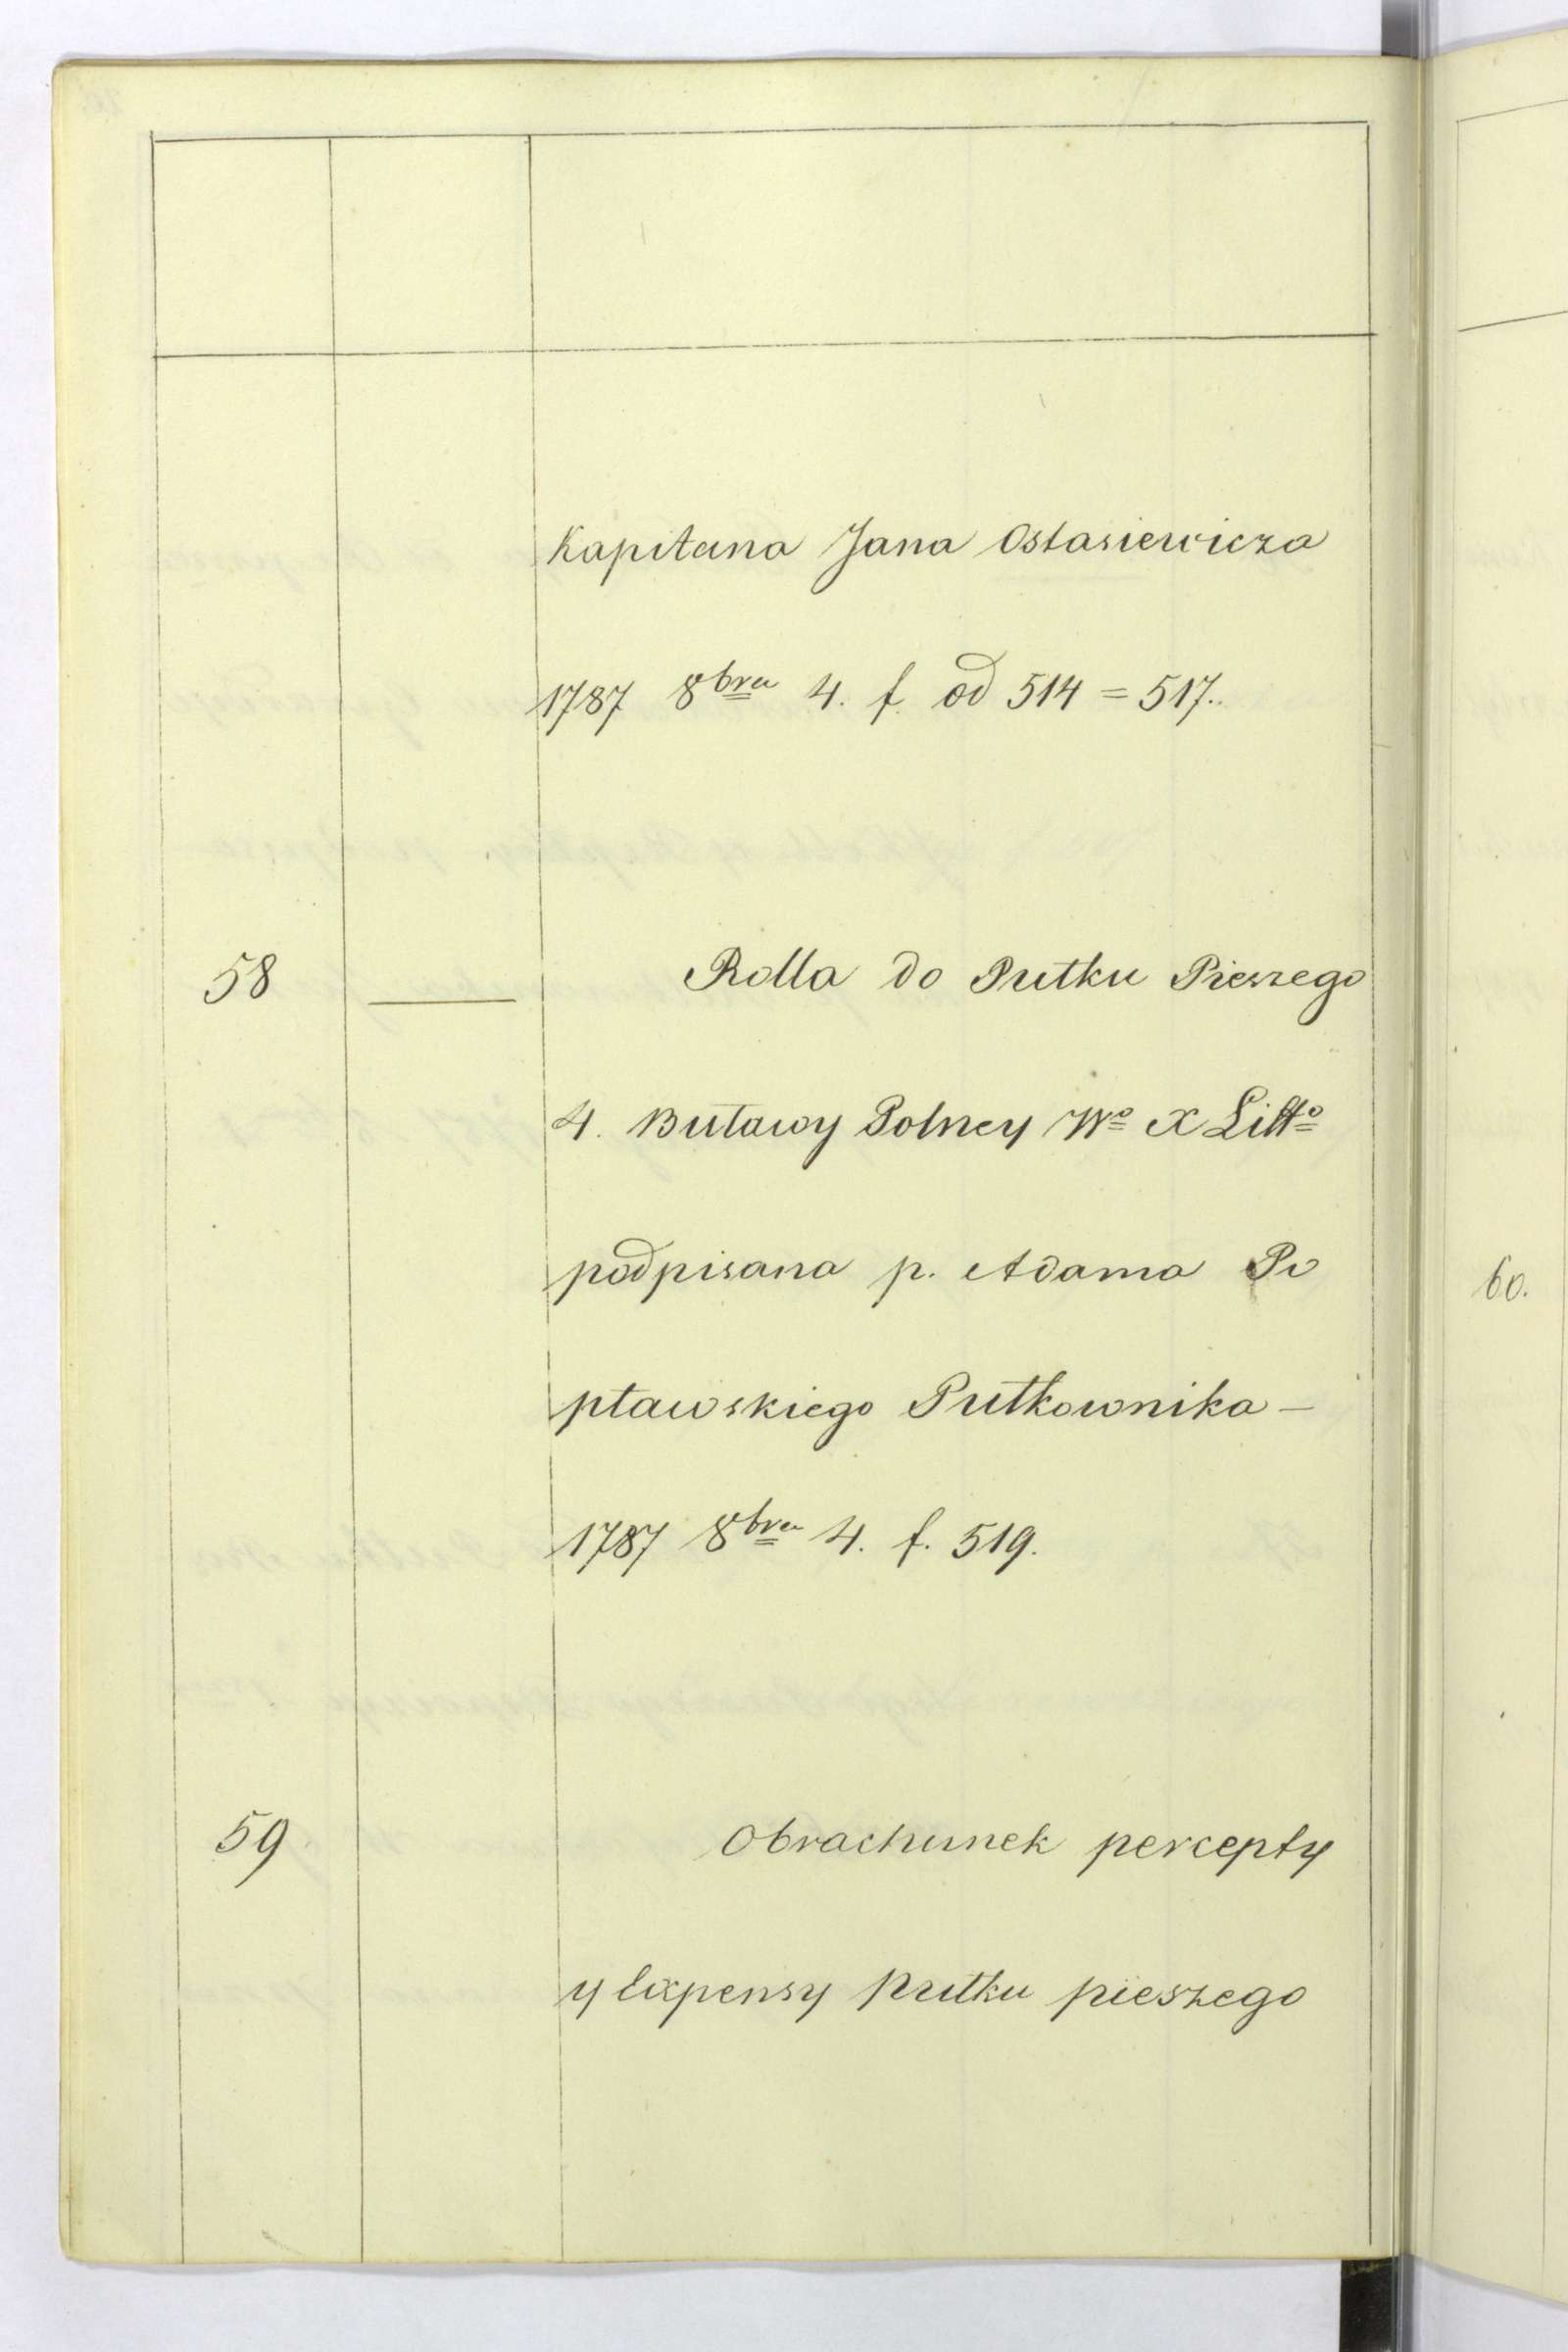 Kapitana Jana Ostasiewicza
1787 8bra 4. f. od 514 = 517..
58 — Rolla do Pułku Pieszego
4. Buławy Polney Wo X Litto
podpisana p. Adama Po
pławskiego Pułkownika —
1787 8bra 4. f. 519.
59 Obrachunek percepty
y Expensy Pułku pieszego
60.